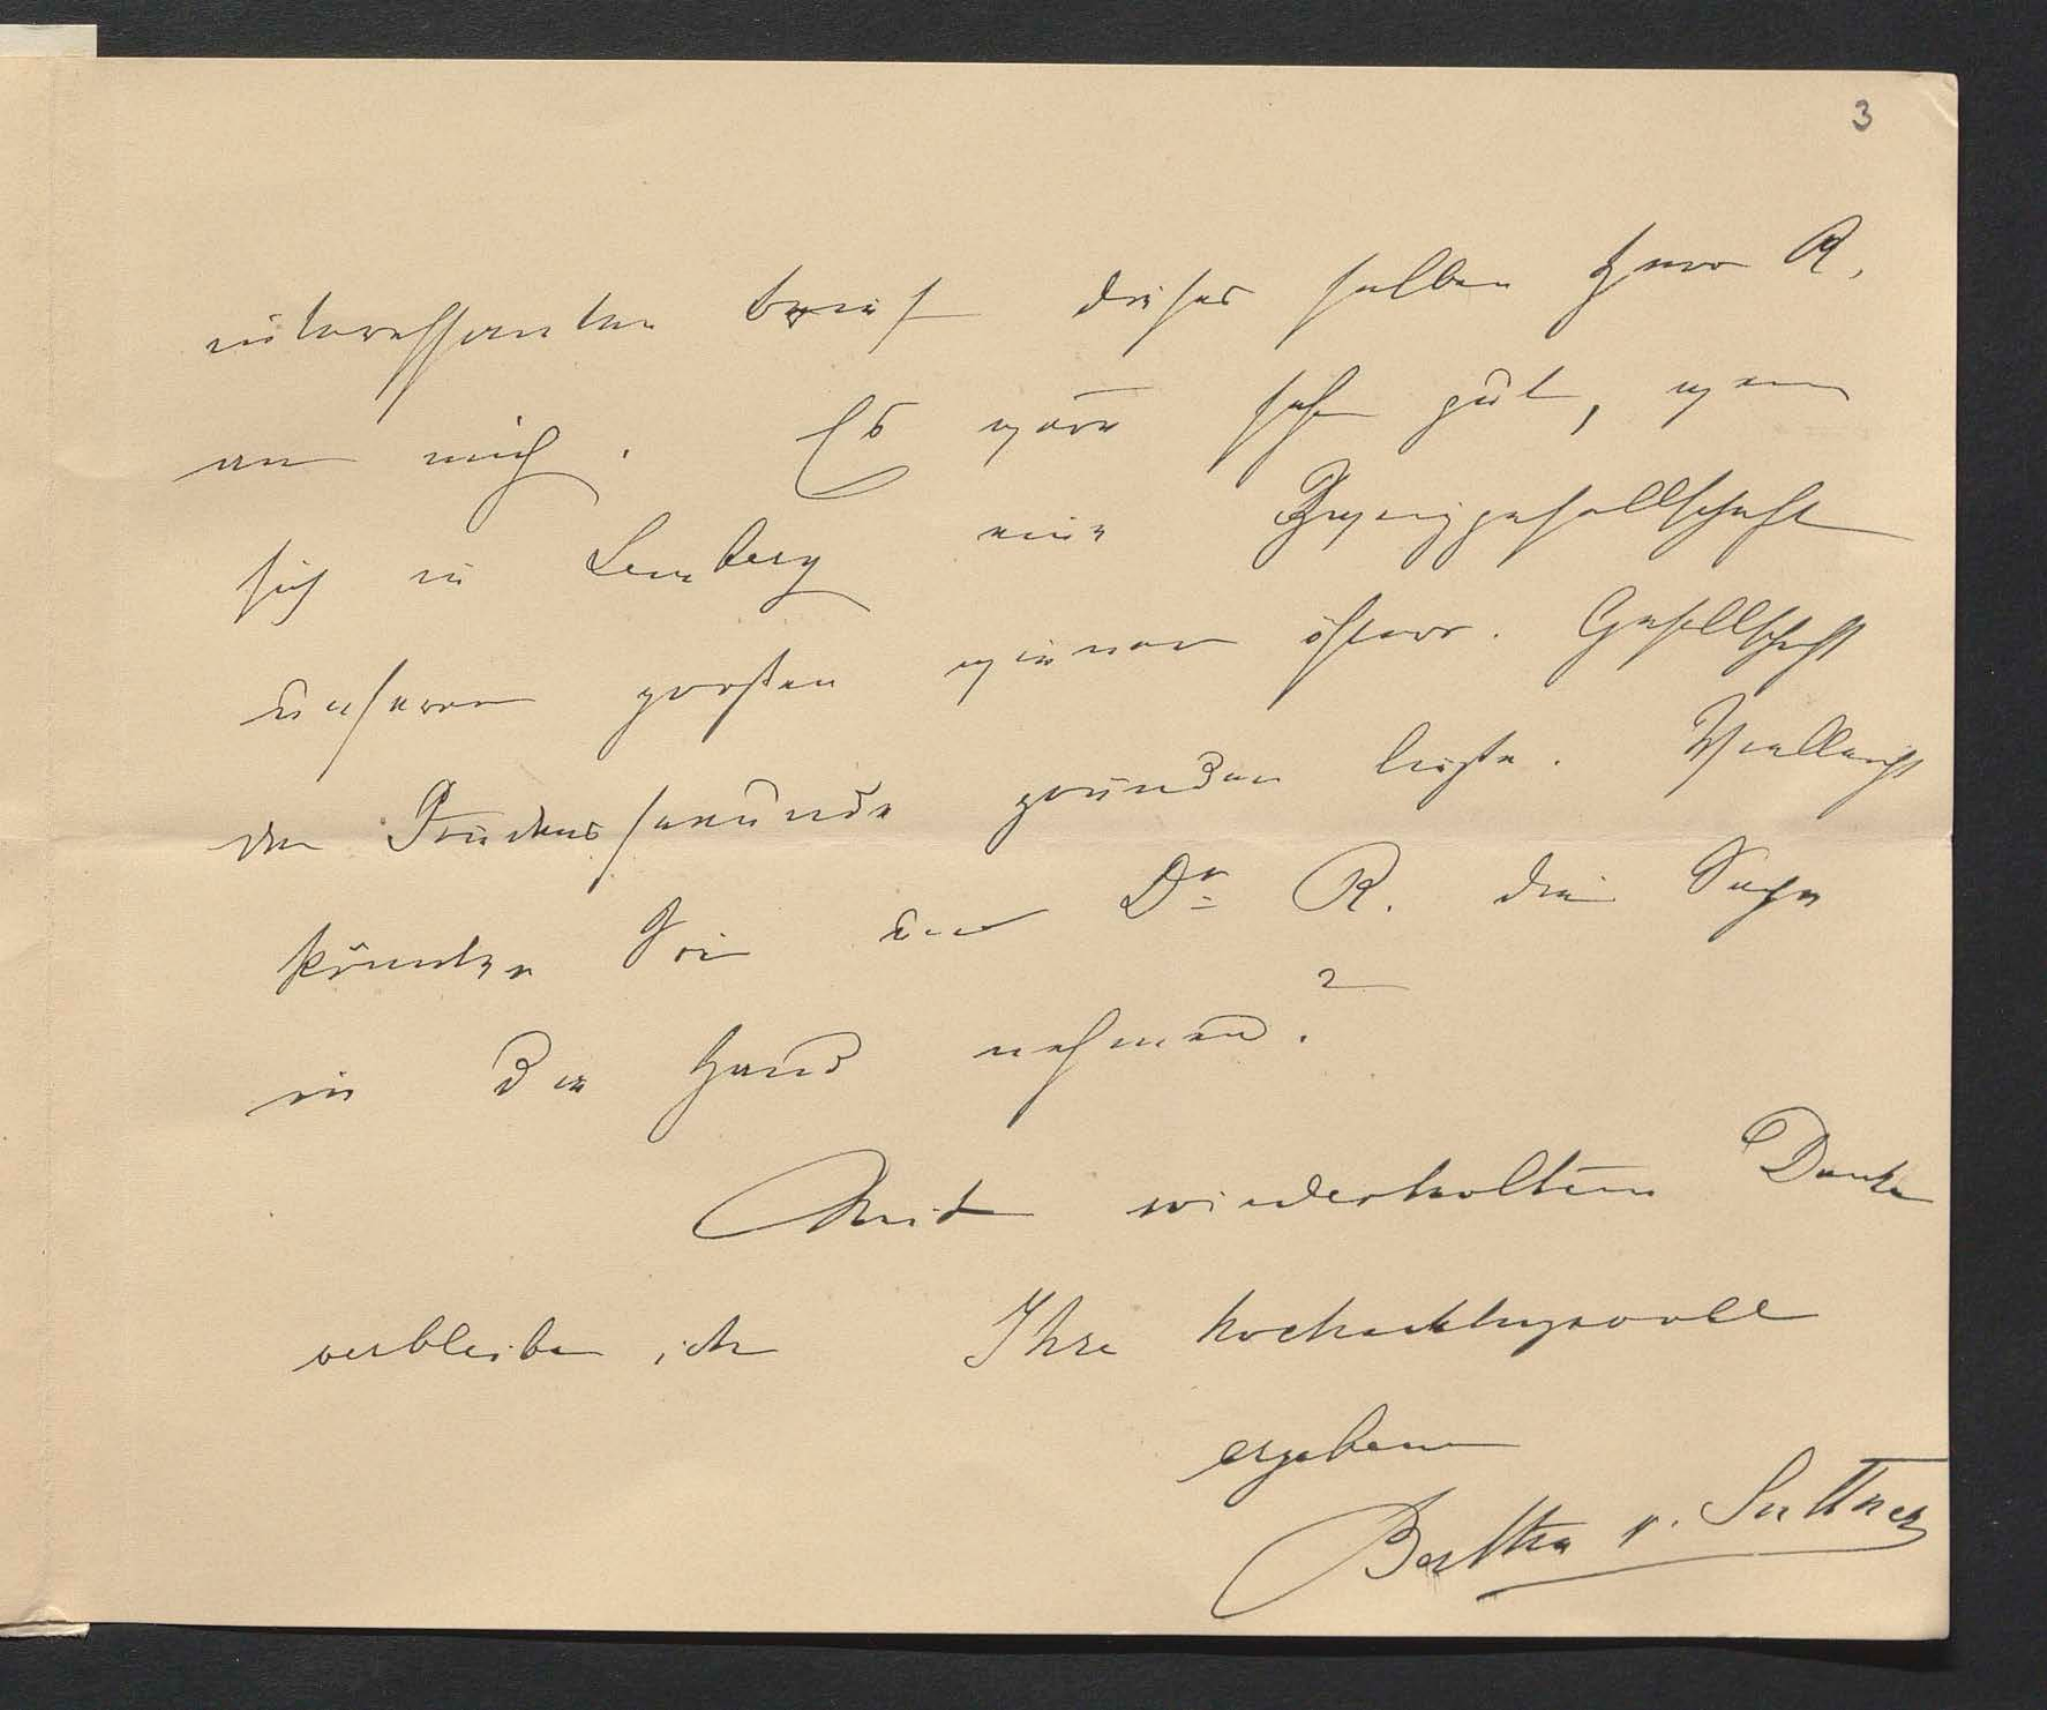 3
interessanten Brief dieses selben Herrn R.
an mich. Es wäre sehr gut, wenn
sich in Lemberg eine Zweiggesellschaft
unserer großen wiener österr. Gesellschaft
der Friedensfreunde gründen ließe. Vielleicht
könnten Sie und Dr. R. die Sache
in die Hand nehmen?
Mit wiederholtem Danke
verbleibe ich Ihre hochachtungsvoll
ergebene
Bertha v. Suttner